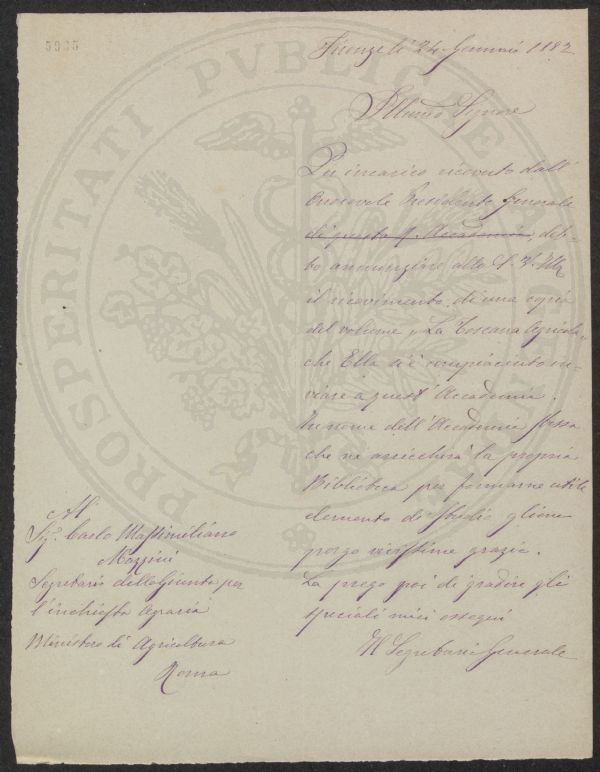 5985
Firenze lì 24 Gennaio 1882
Illmo Signore
Per incarico ricevuto dall'
Onorevole Presidente Generale
di questa R. Accademia, deb-
bo annunziare alla S. V. Illma
il ricevimento di una copia
del volume "La Toscana Agricola"
che Ella si è compiaciuto in-
viare a quest'Accademia.
In nome dell'Accademia stessa
che ne arricchirà la propria
Biblioteca per formarne utile
elemento di studio gliene
porgo vivissime grazie.
La prego poi di gradire gli
speciali miei ossequi
Il Segretario Generale
Al
Sig. Carlo Massimiliano
Mazzini
Segretario della Giunta per
l'inchiesta Agraria
Ministero di Agricoltura
Roma
PROSPERITATI PVBLICAE